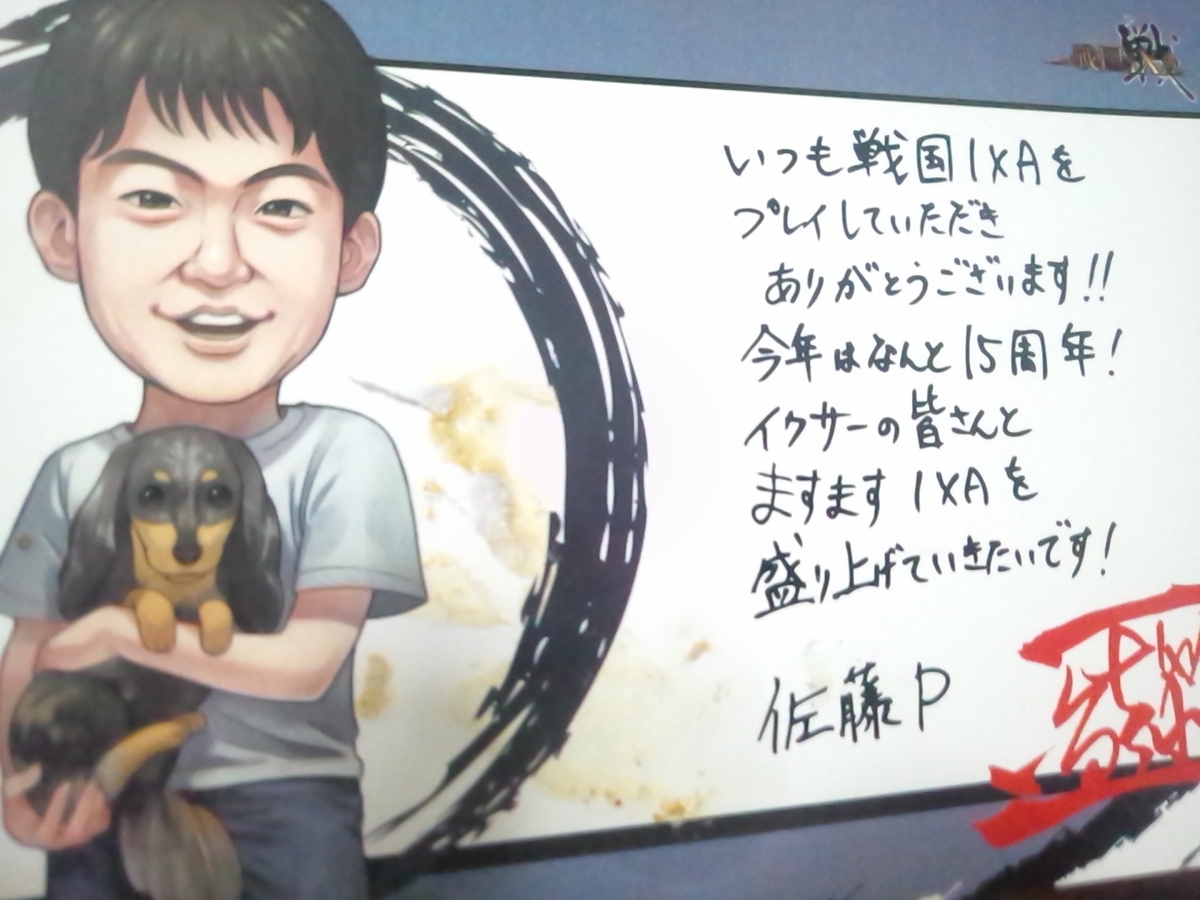 いつも戦国IXAを
プレイしていただき
ありがとうございます!!
今年はなんと15周年!
イクサーの皆さんと
ますますIXAを
盛り上げていきたいです!
佐藤P
戦